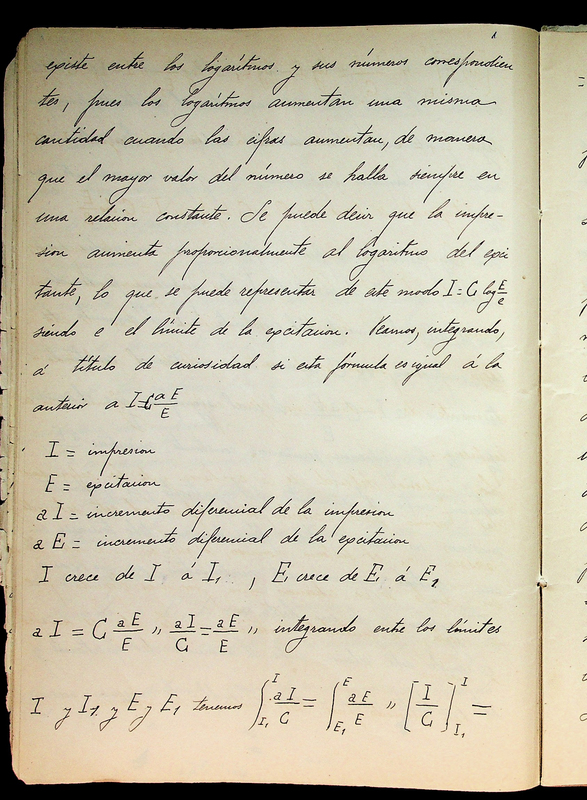 existe entre los logarítmos y sus números correspondien
tes, pues los logarítmos aumentan una misma
cantidad cuando las cifras aumentan, de manera
que el mayor valor del número se halla siempre en
una relacion constante. Se puede decir que la impre-
sion aumenta proporcionalmente al logaritmo del exci
tante, lo que se puede representar de este modo I = C log E/e
siendo e el límite de la excitacion. Veamos, integrando,
á título de curiosidad si esta fórmula es igual á la
anterior a I = C aE/E
I = impresion
E = excitacion
a I = incremento diferencial de la impresion
a E = incremento diferencial de la excitacion
I crece de I á I₁ , E crece de E á E₁
a I = C aE/E „ aI/C = aE/E „ integrando entre los límites
I y I₁ y E y E₁ tenemos ∫_{I₁}^{I} aI/C = ∫_{E₁}^{E} aE/E „ [I/C]_{I₁}^{I} =